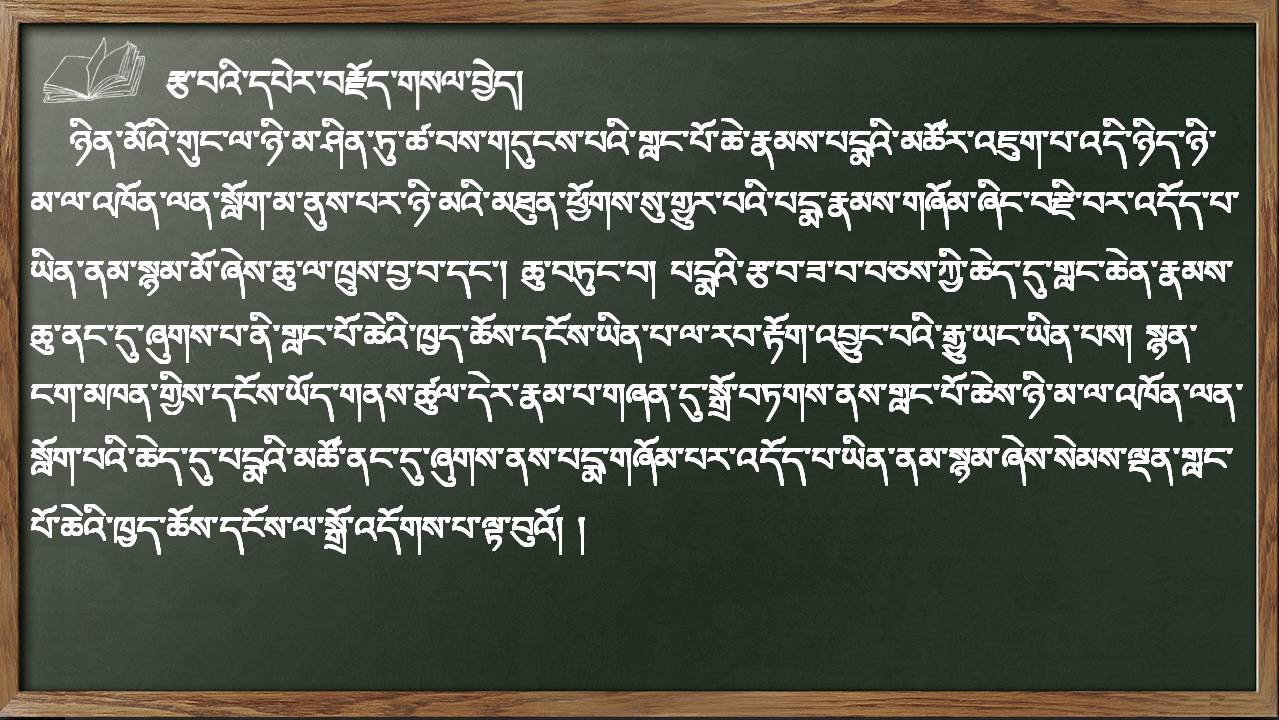 རྩ་བའི་དཔེར་བརྗོད་གསལ་བྱེད།
ཉིན་མོའི་གུང་ལ་ཉི་མ་ཤིན་ཏུ་ཚ་བས་གདུངས་པའི་གླང་པོ་ཆེ་རྣམས་པདྨའི་མཚོར་འཇུག་པ་འདི་ཉིད་ཉི་
མ་ལ་འཁོན་ལན་སློག་མ་ནུས་པར་ཉི་མའི་མཐུན་ཕྱོགས་སུ་གྱུར་པའི་པདྨ་རྣམས་གཞོམ་ཞིང་བརྫི་བར་འདོད་པ་
ཡིན་ནམ་སྙམ་མོ་ཞེས་ཆུ་ལ་ཁྲུས་བྱ་བ་དང་། ཆུ་བཏུང་བ། པདྨའི་རྩ་བ་ཟ་བ་བཅས་ཀྱི་ཆེད་དུ་གླང་ཆེན་རྣམས་
ཆུ་ནང་དུ་ཞུགས་པ་ནི་གླང་པོ་ཆེའི་ཁྱད་ཆོས་དངོས་ཡིན་པ་ལ་རབ་རྟོག་འབྱུང་བའི་རྒྱུ་ཡང་ཡིན་པས། སྙན་
ངག་མཁན་གྱིས་དངོས་ཡོད་གནས་ཚུལ་དེར་རྣམ་པ་གཞན་དུ་སྒྲོ་བཏགས་ནས་གླང་པོ་ཆེས་ཉི་མ་ལ་འཁོན་ལན་
སློག་པའི་ཆེད་དུ་པདྨའི་མཚོ་ནང་དུ་ཞུགས་ནས་པདྨ་གཞོམ་པར་འདོད་པ་ཡིན་ནམ་སྙམ་ཞེས་སེམས་ལྡན་གླང་
པོ་ཆེའི་ཁྱད་ཆོས་དངོས་ལ་སྒྲོ་འདོགས་པ་ལྟ་བུའོ། །